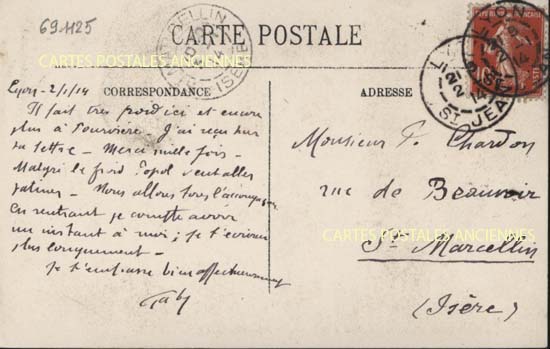 69-1125
CARTE POSTALE
CARTES POSTALES ANCIENNES
CORRESPONDANCE
ADRESSE
MARCELLIN
ISÈRE
LYON
ST JEAN
Lyon - 2/1/14
Il fait très froid ici et encore
plus à Fourvière. J'ai reçu hier
ta lettre - Merci mille fois -
Malgré le froid Popol veut aller
patiner - Nous allons tous l'accompagner
En rentrant je compte avoir
un instant à moi; je t'écrirai
plus longuement -
Je t'embrasse bien affectueusement
Gaby
Monsieur P. Chardon
rue de Beauvoir
CARTES POSTALES ANCIENNES
St Marcellin
(Isère)